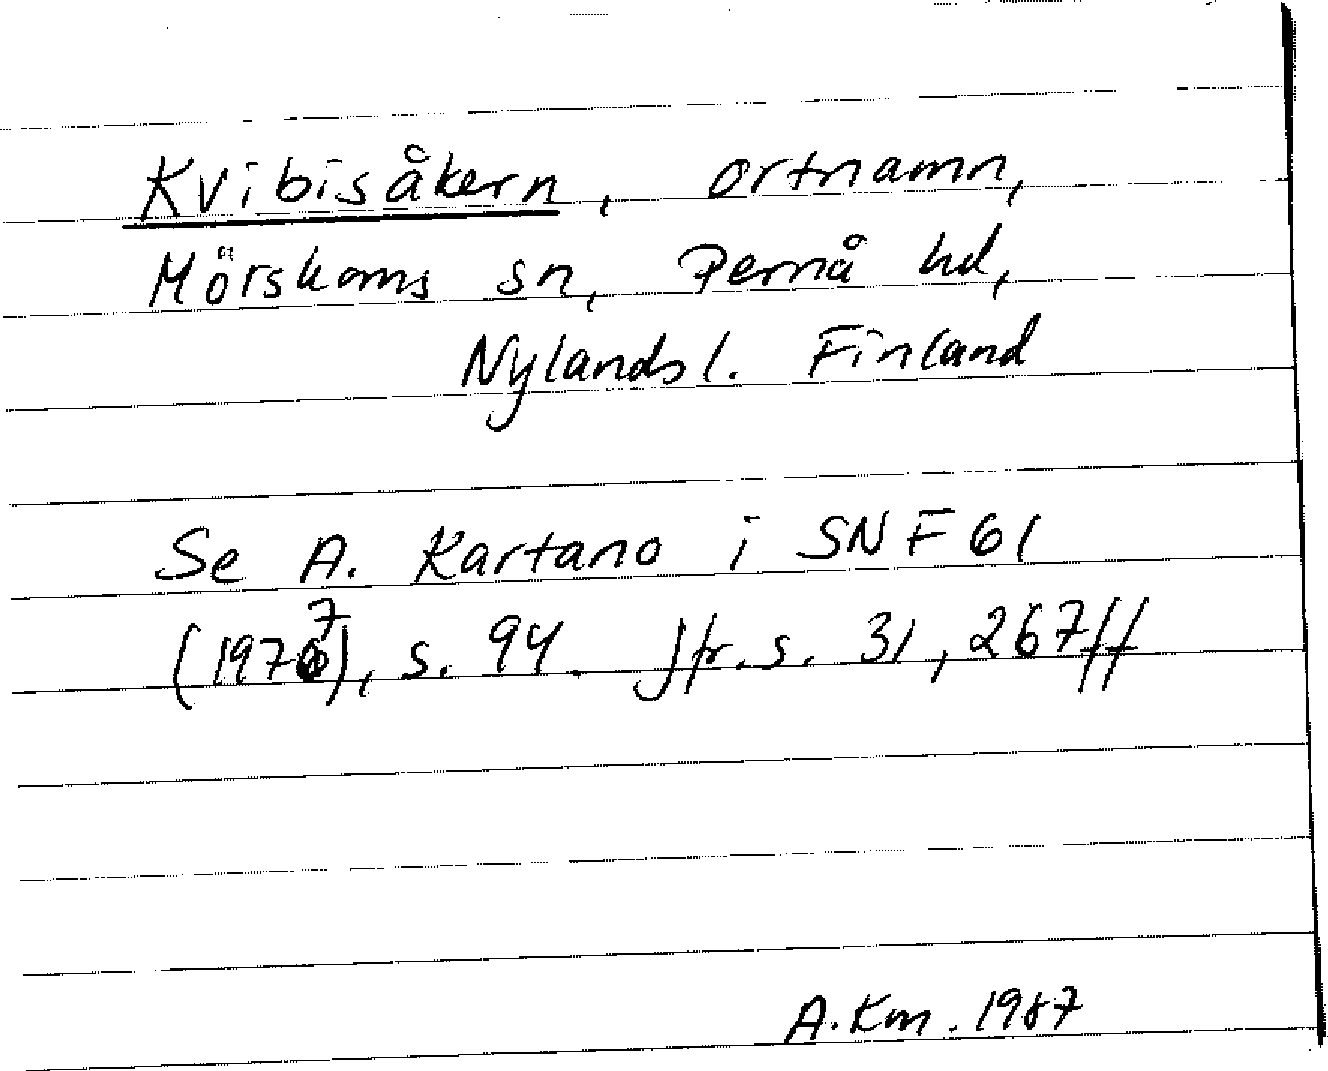 Kvibisåkern, ortnamn,
Mörskoms sn, Pernå hd,
Nylands l. Finland
Se A. Kartano i SNF 61
(1977), s. 94. Jfr. s. 31, 267ff
A. Km. 1987